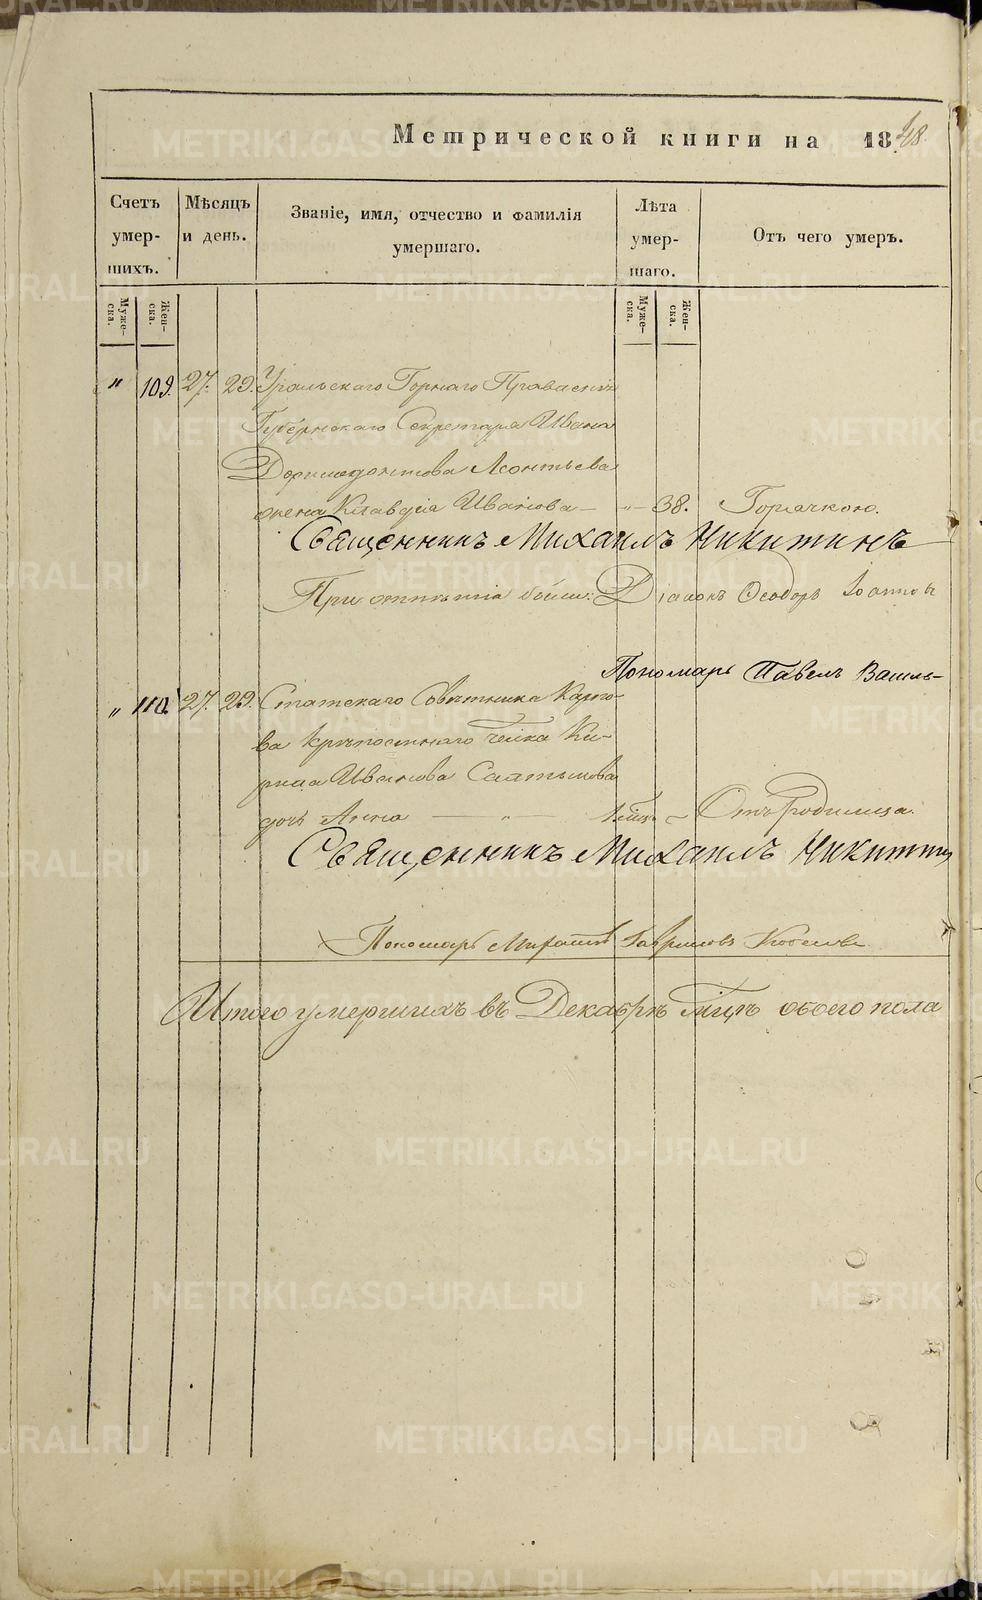 Метрической книги на 1848.
Счетъ умер- шихъ.
Мѣсяцъ и день.
Званіе, имя, отчество и фамилія умершаго.
Лѣта умер- шаго.
Отъ чего умеръ.
Муже- ска.
Жен- ска.
Муже- ска.
Жен- ска.
" 109. 27. 29. Уральскаго Горнаго Правленія
Губернскаго Секретаря Ивана
Дормедонтова Леонтьева
жена Клавдія Иванова — " — 38. Горячкою.
Священникъ Михаилъ Никитинъ
При отпѣтіи были: Діаконъ Ѳеодоръ Іоанновъ
Пономарь Павелъ Василь-
" 110. 27. 29. Статскаго Совѣтника Карпо-
ва крѣпостнаго
Ки-
рила Иванова Салтыкова
дочь Анна — " Отъ Родимца.
Священникъ Михаилъ Никитин
Пономарь Гавриловъ
Итого умершихъ въ Декабрѣ м҃цѣ обоего пола
METRIKI.GASO-URAL.RU